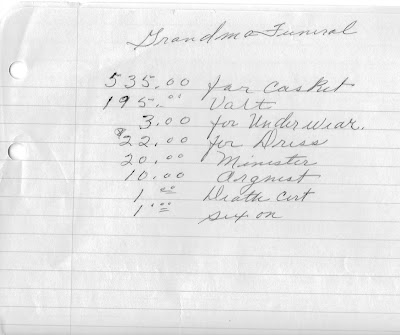 Grandma Funeral
535.00 for Casket
195.00 Valt
3.00 for Underwear.
$22.00 for Dress
20.00 Minister
10.00 Orgnist
1.00 Death Cert
1.00